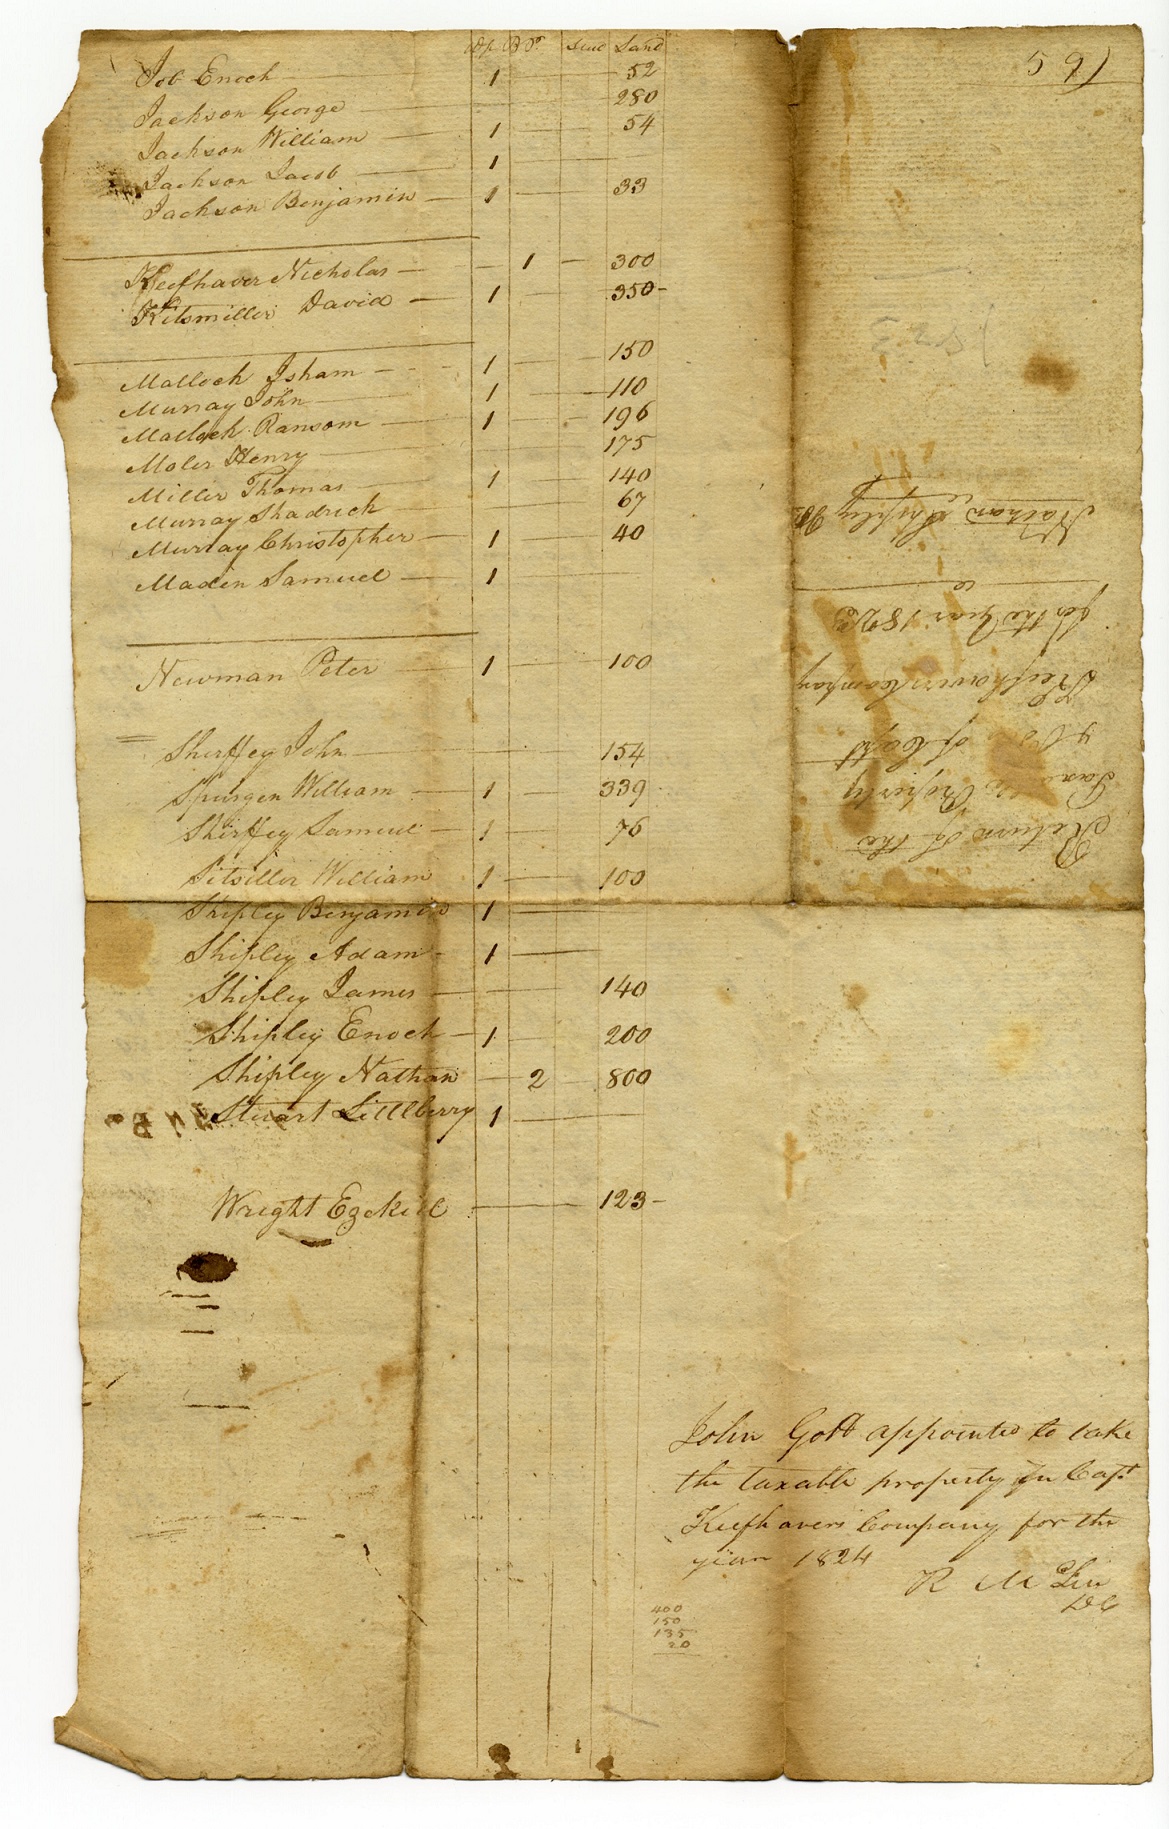 Wp BP Stud Land
Job Enoch 1 52
Jackson George 280
Jackson William 1 54
Jackson Jacob 1
Jackson Benjamin 1 33
Keefhaver Nicholas 1 300
Kitsmiller David 1 350
Matlock Isham 1 150
Murray John 1 110
Matlock Ransom 1 196
Moler Henry 175
Miller Thomas 1 140
Murray Shadrick 67
Murray Christopher 1 40
Maden Samuel 1
Newman Peter 1 100
Shirffey John 154
Spurgen William 1 339
Shirffey Samuel 1 76
Sitsiller William 1 100
Shipley Benjamin 1
Shipley Adam 1
Shipley James 140
Shipley Enoch 1 200
Shipley Nathan 2 800
Stuart Littlberry 1
Wright Ezekiel 123
John Gott appointed to take
the taxable property in Capt
Keefhavers Company for the
year 1824
R McLin
DC
400
150
135
20
Return of the
Taxable Property
of Capt
Keefhavers Company
for the Year 1823
Nathan Shipley
1823
59)